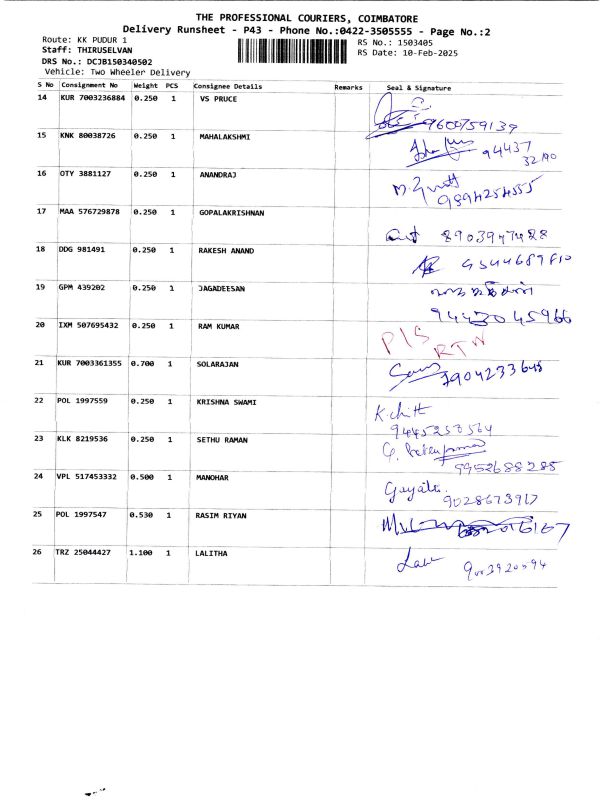 THE PROFESSIONAL COURIERS, COIMBATORE
Delivery Runsheet - P43 - Phone No.:0422-3505555 - Page No.:2
Route: KK PUDUR 1 RS No.: 1503405
Staff: THIRUSELVAN RS Date: 10-Feb-2025
DRS No.: DCJB150340502
Vehicle: Two Wheeler Delivery
S No Consignment No Weight PCS Consignee Details Remarks Seal & Signature
14 KUR 7003236884 0.250 1 VS PRUCE
9600759139
15 KNK 80038726 0.250 1 MAHALAKSHMI
94437
32190
16 OTY 3881127 0.250 1 ANANDRAJ
9894254555
17 MAA 576729878 0.250 1 GOPALAKRISHNAN
8903947428
18 DDG 981491 0.250 1 RAKESH ANAND
19 GPM 439202 0.250 1 JAGADEESAN
9443045966
20 IXM 507695432 0.250 1 RAM KUMAR P/S
RTN
21 KUR 7003361355 0.700 1 SOLARAJAN
7904233645
22 POL 1997559 0.250 1 KRISHNA SWAMI
9445253564
23 KLK 8219536 0.250 1 SETHU RAMAN
9952688285
24 VPL 517453332 0.500 1 MANOHAR
9028673917
25 POL 1997547 0.530 1 RASIM RIYAN
26 TRZ 25044427 1.100 1 LALITHA